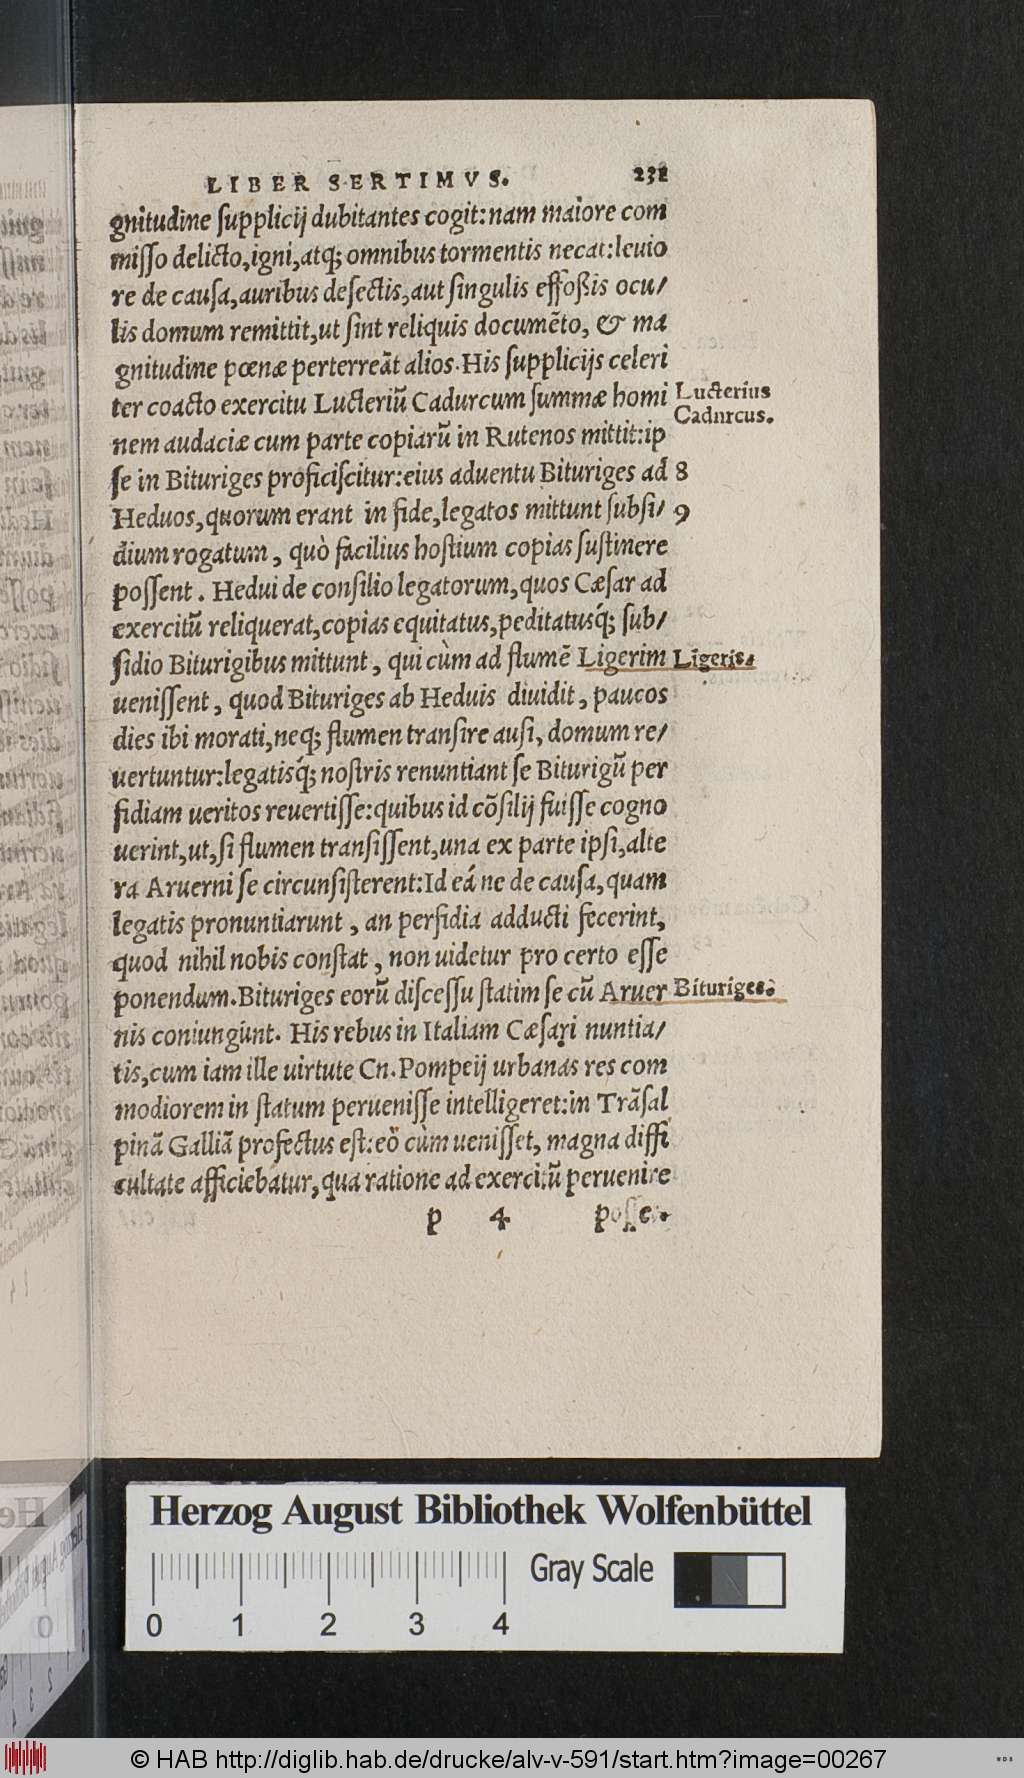 LIBER SERTIMVS. 231
gnitudine ſupplicij dubitantes cogit:nam maiore com
miſſo delicto,igni,atq; omnibus tormentis necat:leuio
re de cauſa,auribus deſectis,aut ſingulis effoßis ocu/
lis domum remittit,ut ſint reliquis documẽto, & ma
gnitudine pœnæ perterreãt alios.His ſupplicijs celeri
ter coacto exercitu Lucteriũ Cadurcum ſummæ homi
Lucterius
Cadurcus.
nem audaciæ cum parte copiarũ in Rutenos mittit:ip
ſe in Bituriges proficiſcitur:eius aduentu Bituriges ad 8
Heduos,quorum erant in fide,legatos mittunt ſubſi/ 9
dium rogatum, quò facilius hoſtium copias ſuſtinere
poſſent. Hedui de conſilio legatorum,quos Cæſar ad
exercitũ reliquerat,copias equitatus,peditatusq́; ſub/
ſidio Biturigibus mittunt, qui cùm ad flumẽ Ligerim Ligeris.
ueniſſent, quod Bituriges ab Heduis diuidit, paucos
dies ibi morati,neq; flumen tranſire auſi, domum re/
uertuntur:legatisq́; noſtris renuntiant ſe Biturigũ per
fidiam ueritos reuertiſſe:quibus id cõſilij fuiſſe cogno
uerint,ut,ſi flumen tranſiſſent,una ex parte ipſi,alte
ra Aruerni ſe circunſiſterent:Id eá ne de cauſa,quam
legatis pronuntiarunt, an perfidia adducti fecerint,
quod nihil nobis conſtat, non uidetur pro certo eſſe
ponendum.Bituriges eorũ diſceſſu ſtatim ſe cũ Aruer Bituriges.
nis coniungunt. His rebus in Italiam Cæſari nuntia/
tis,cum iam ille uirtute Cn.Pompeij urbanas res com
modiorem in ſtatum perueniſſe intelligeret:in Trãſal
pinã Galliã profectus eſt:eò cùm ueniſſet, magna diffi
cultate afficiebatur,qua ratione ad exercitũ peruenire
p 4 poſſe.
Herzog August Bibliothek Wolfenbüttel
Gray Scale
0 1 2 3 4
© HAB http://diglib.hab.de/drucke/alv-v-591/start.htm?image=00267